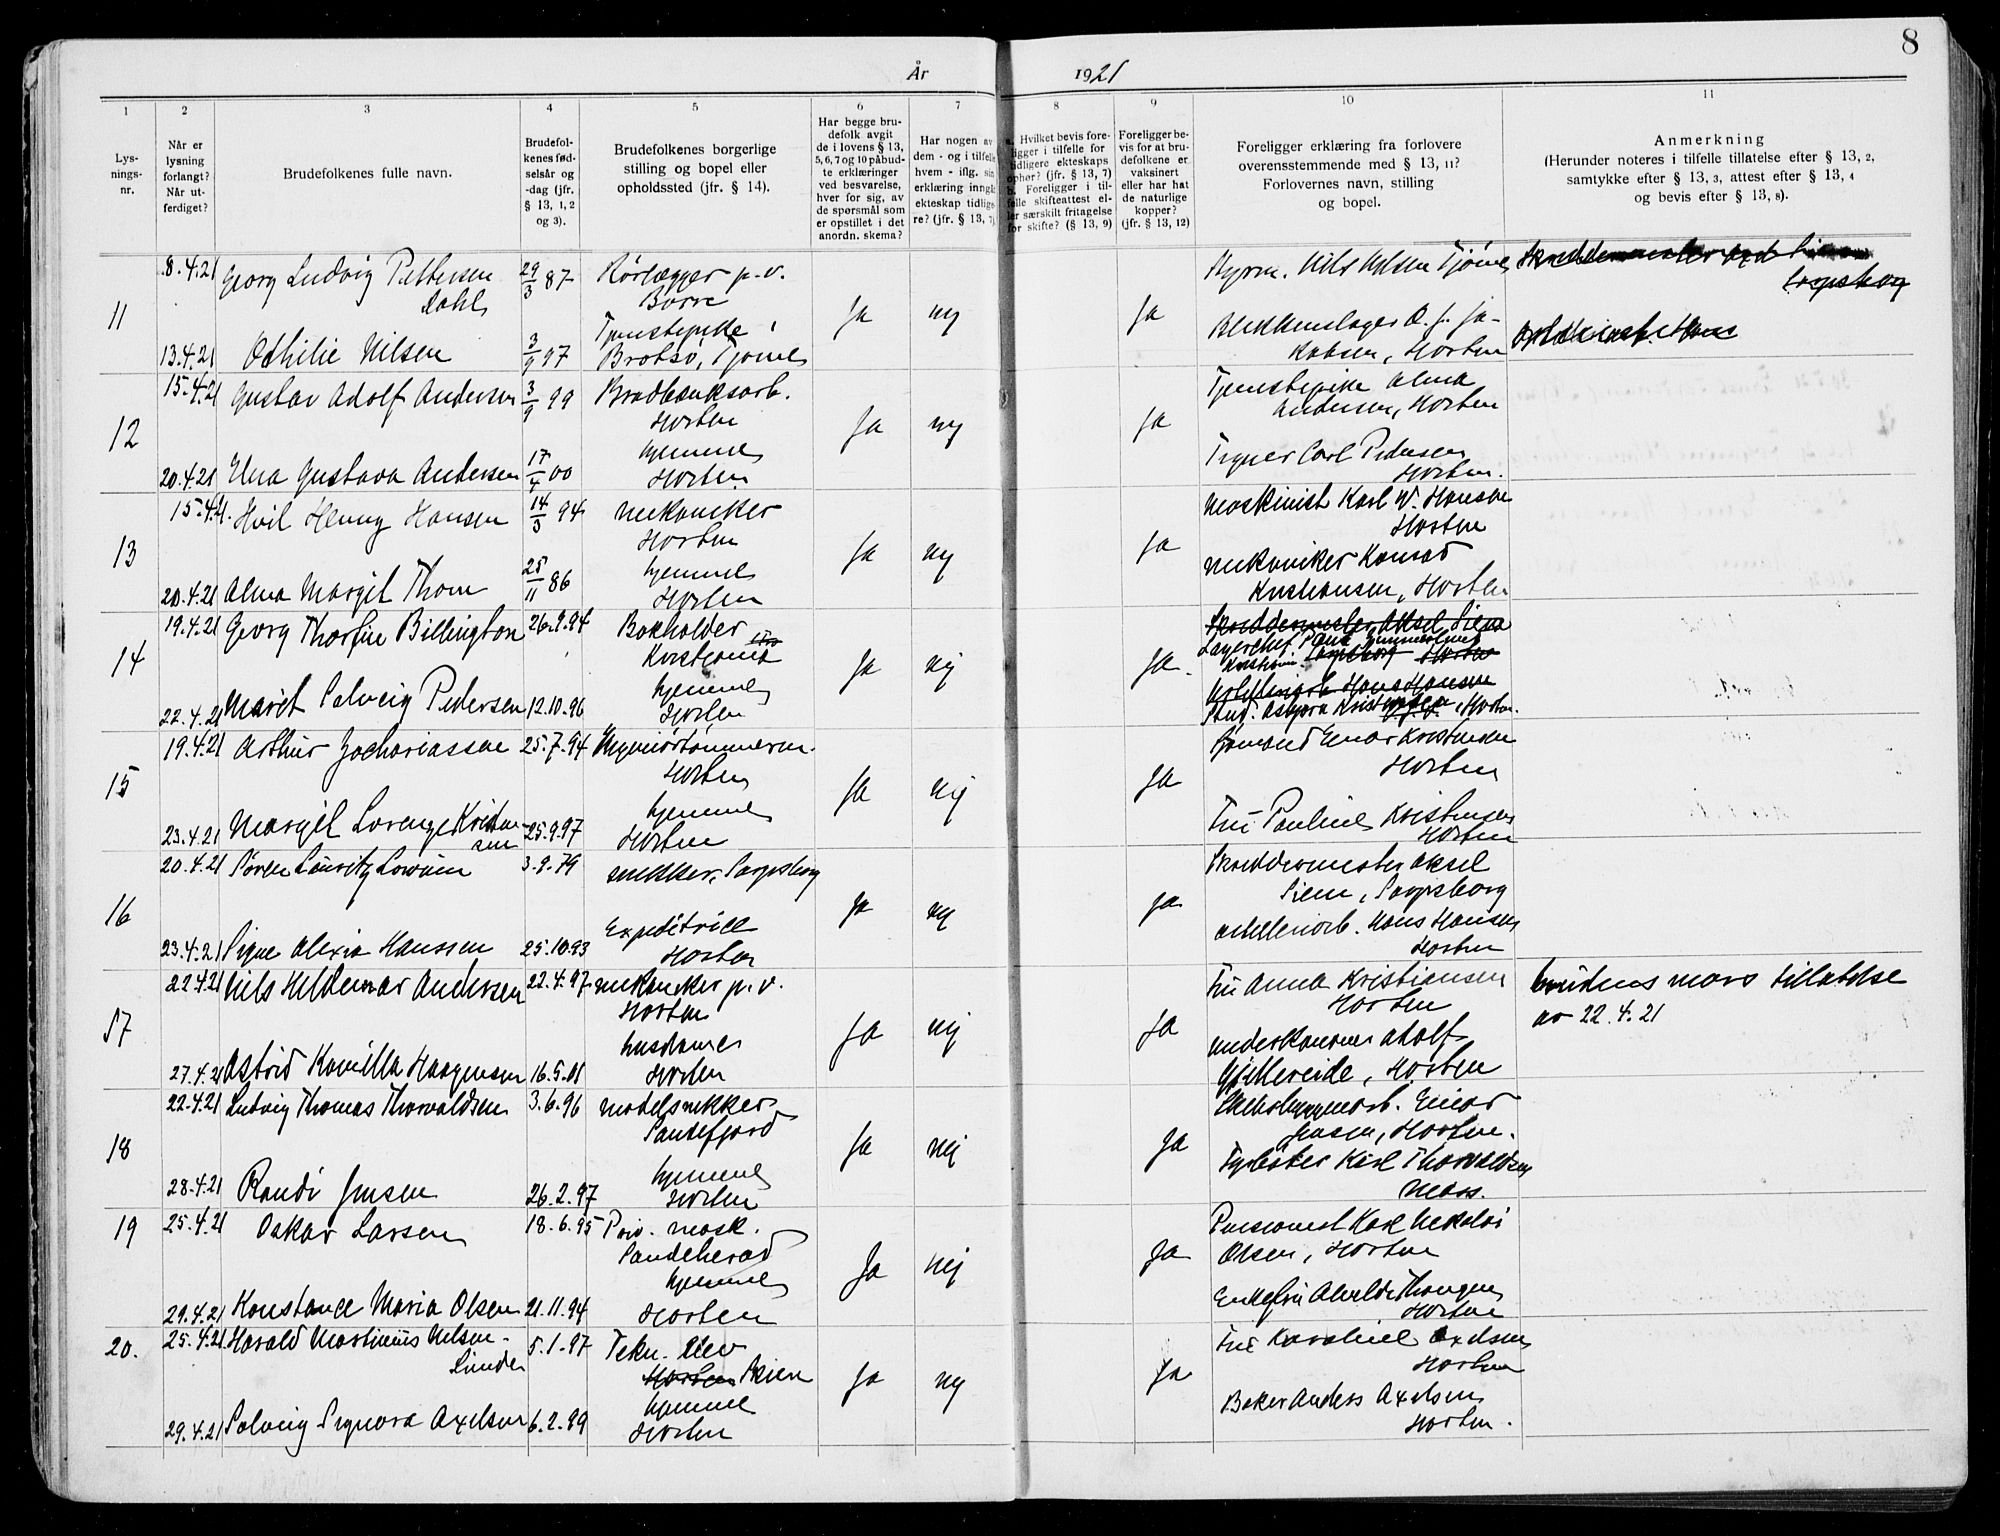 8
År 1921
1 2 3 4 5 6 7 8 9 10 11
Lysningsnr.
Når er lysning forlangt? Når utferdiget?
Brudefolkenes fulle navn.
Brudefolkenes fødselsår og -dag (jfr. § 13, 1, 2 og 3).
Brudefolkenes borgerlige stilling og bopel eller opholdssted (jfr. § 14).
Har begge brudefolk avgit de i lovens § 13, 5, 6, 7 og 10 påbudte erklæringer ved besvarelse, hver for sig, av de spørsmål som er opstillet i det anordn. skema?
Har nogen av dem - og i tilfelle hvem - iflg. sin erklæring inngått ekteskap tidligere? (jfr. § 13, 7)
a. Hvilket bevis foreligger i tilfelle for tidligere ekteskaps ophør? (§ 13, 7) b. Foreligger i tilfelle skifteattest eller særskilt fritagelse for skifte? (§ 13, 9)
Foreligger bevis for at brudefolkene er vaksinert eller har hat de naturlige kopper? (jfr. § 13, 12)
Foreligger erklæring fra forlovere overensstemmende med § 13, 11? Forlovernes navn, stilling og bopel.
Anmerkning (Herunder noteres i tilfelle tillatelse efter § 13, 2, samtykke efter § 13, 3, attest efter § 13, 4 og bevis efter § 13, 8).
11
8.4.21 Georg Ludvig Pettersen 29/3 87 Rørlægger p.v.
Dahl Borre
Ja nej Ja
Styrm. Nils Nilsen Tjøme
13.4.21 Othilie Nilsen 3/9 97 Tjenestepike
Brøtsø, Tjøme
Blikkenslager O. J. Ja-
kobsen, Horten
12
15.4.21 Gustav Adolf Andersen 3/9 99
Horten
Ja nej Ja
Tjenestepike Alma
Andersen, Horten
20.4.21 Elna Gustava Andersen 17/4 00 hjemme
Horten
Carl Pedersen
Horten.
13
15.4.21. Henny Hansen 14/3 94 mekaniker
Horten
Ja nej Ja
Maskinist Karl W. Hansen
Horten
20.4.21 Alma Margit Thom 25/11 86 hjemme
Horten
mekaniker Konrad
Kristiansen, Horten
14
19.4.21 Georg Thorfin Billington 26.9.94 Bokholder
Kristiania
Ja nej Ja.
Skreddermester Aksel Siem
Sarpsborg Horten
22.4.21 Marit Solveig Pedersen 12.10.96 hjemme
Horten
Hans Hansen
Stud. Asbjørn Kristensen, Horten.
15
19.4.21 Arthur Zachariassen 25.7.94
Horten
Ja nej Ja
Formand Einar Kristensen
Horten
23.4.21 Margit Lorenze Kristen-
sen 25.9.97 hjemme
Horten
Fru Pauline Kristensen
Horten
16
20.4.21 Søren Lauritz 3.9.79 snekker, Sarpsborg
Ja nej Ja
Skreddermester Aksel
Siem, Sarpsborg
23.4.21 Signe Alexia Hanssen 25.10.93 Expeditrice
Horten
Hans Hansen
Horten
17
22.4.21 Nils Hildemar Andersen 22.4.97 mekaniker p.v.
Horten
Ja nej Ja
Fru Anna Kristiansen
Horten
brudens mors tillatelse
av 22.4.21
27.4.21 Astrid Kamilla Haagensen 16.5.01
Horten
underkanoner Adolf
Gjellereide, Horten
18
22.4.21 Ludvig Thomas Thorvaldsen 3.6.96 modelsnekker
Sandefjord
Ja nej Ja
Einar
Jensen, Horten.
28.4.21 Randi Jensen 26.2.97 hjemme
Horten
Fyrbøter Karl Thorvaldsen
Moss.
19
25.4.21 Oskar Larsen 18.6.95 Priv. mask.
Sandeherad
Ja nej Ja
Pensionist Karl Nikolai
Olsen, Horten
29.4.21 Konstance Maria Olsen 21.11.94 hjemme
Horten
Enkefru Alvilde Thorgersen
Horten
20.
25.4.21 Harald Martinius Nilsen-
Linder 5.1.97 Tekn. elev
Horten Skien
Ja nej Ja
Fru Karoline Axelsen
Horten
29.4.21 Solveig Signora Axelsen 6.2.99 hjemme
Horten
Baker Anders Axelsen
Horten.